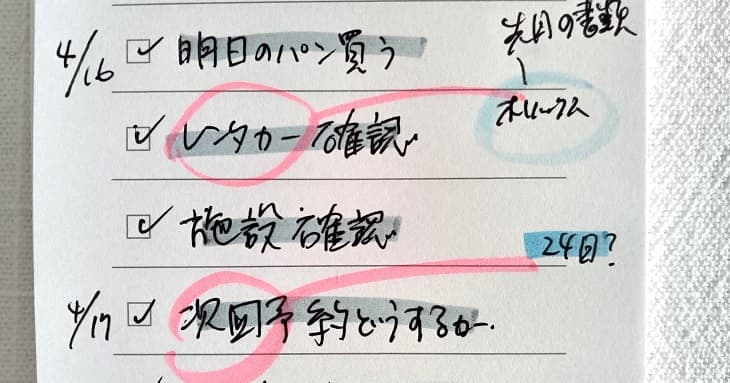 4/16 明日のパン買う
先月の書類
レンタカー確認
オリックス
施設確認
24日?
4/17 次回予約どうするかー.